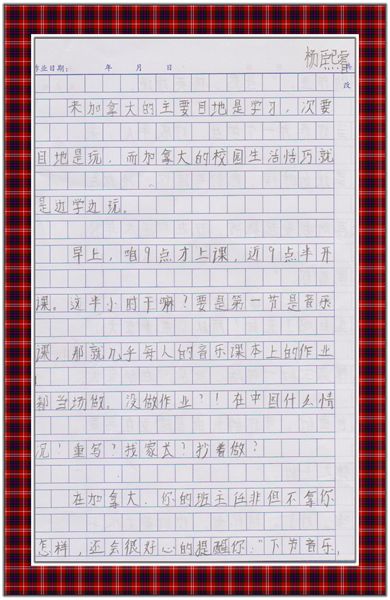 杨熙睿
作业日期: 年 月 日
改
来加拿大的主要目地是学习，次要
目地是玩，而加拿大的校园生活恰巧就
是边学边玩。
早上，咱9点才上课，近9点半开
课。这半小时干嘛？要是第一节是音乐
课，那就几乎每人的音乐课本上的作业
都当场做。没做作业？！在中国什么情
况？重写？找家长？抄着做？
在加拿大，你的班主任非但不拿你
怎样，还会很好心的提醒你："下节音乐，